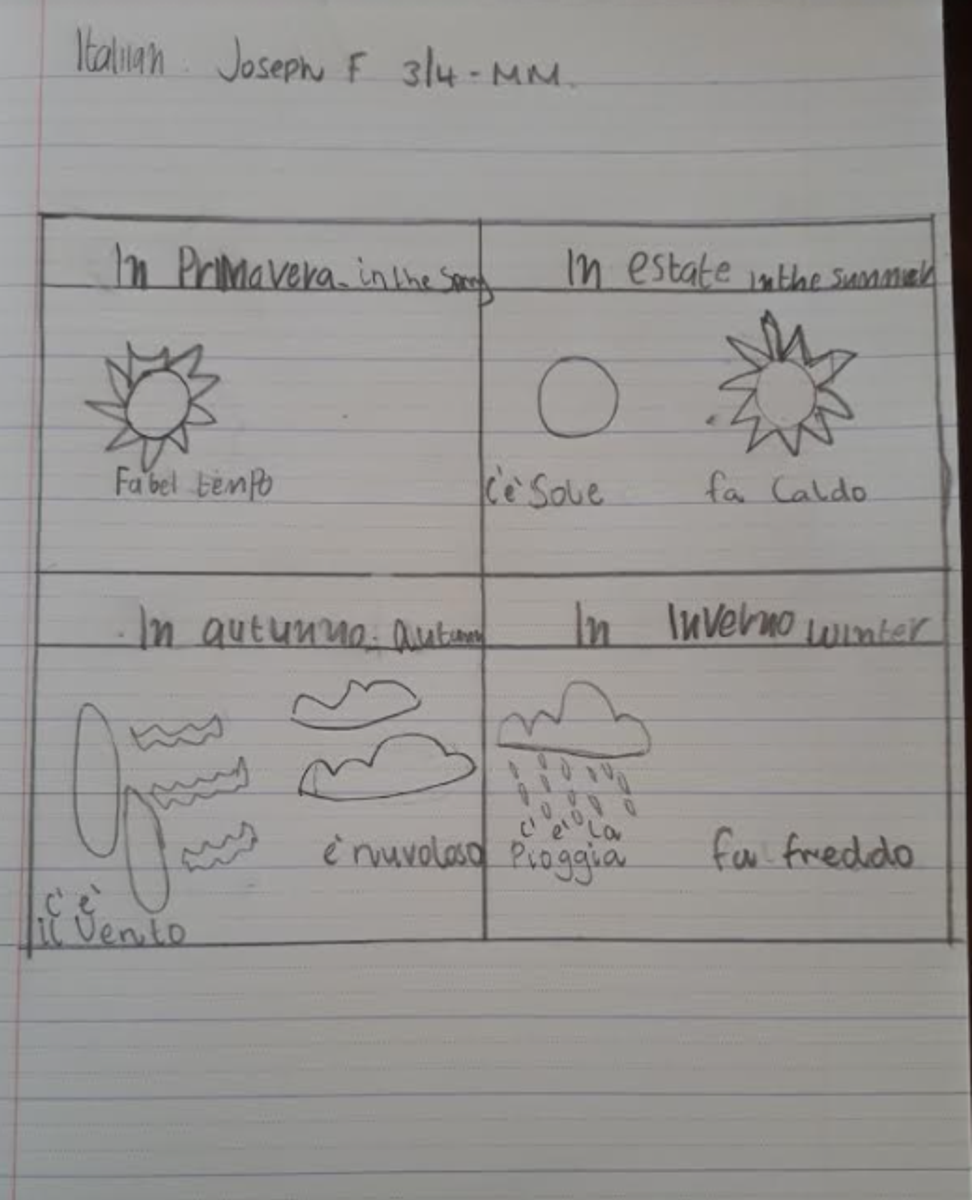 Italian. Joseph F 3/4-MM.
In Primavera - in the Spring
In estate in the summer
Fa bel tempo
c'è Sole
fa Caldo
In autunno. autumn
In Inverno winter
c'è
il Vento
è nuvoloso
c'è la
Pioggia
fa freddo